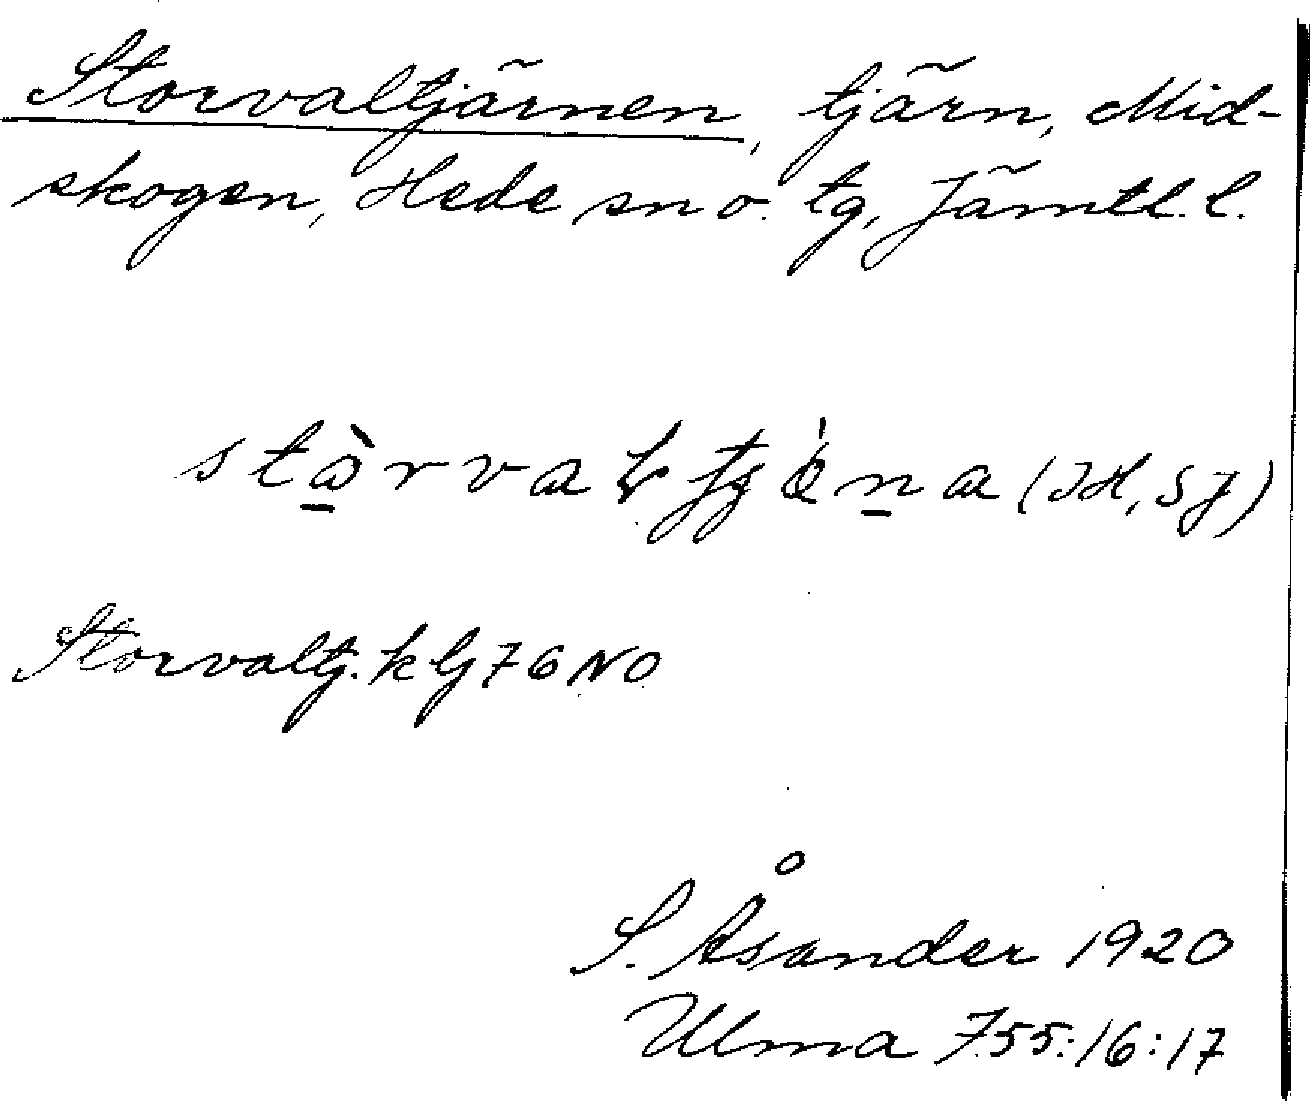 Storvaltjärnen, tjärn, Mid-
skogen, Hede sn o. tg, Jämtl. l.
(JH, SJ)
Storvaltj. k bj 76 NO
S. Åsander 1920
Ulma 755:16:17